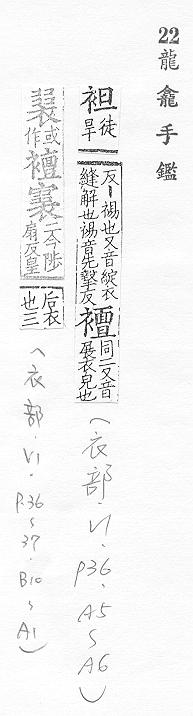 22 龍龕手鑑
袒 徒旱 反丨裼也又音綻衣縫解也裼音先擊反 襢 同一又音展衣皃也 (衣部・V1・P36・A5〜A6)
或作 襢 二今陟扇反皇 后衣也三 (衣部・V1・P.36〜37・B10〜A1)